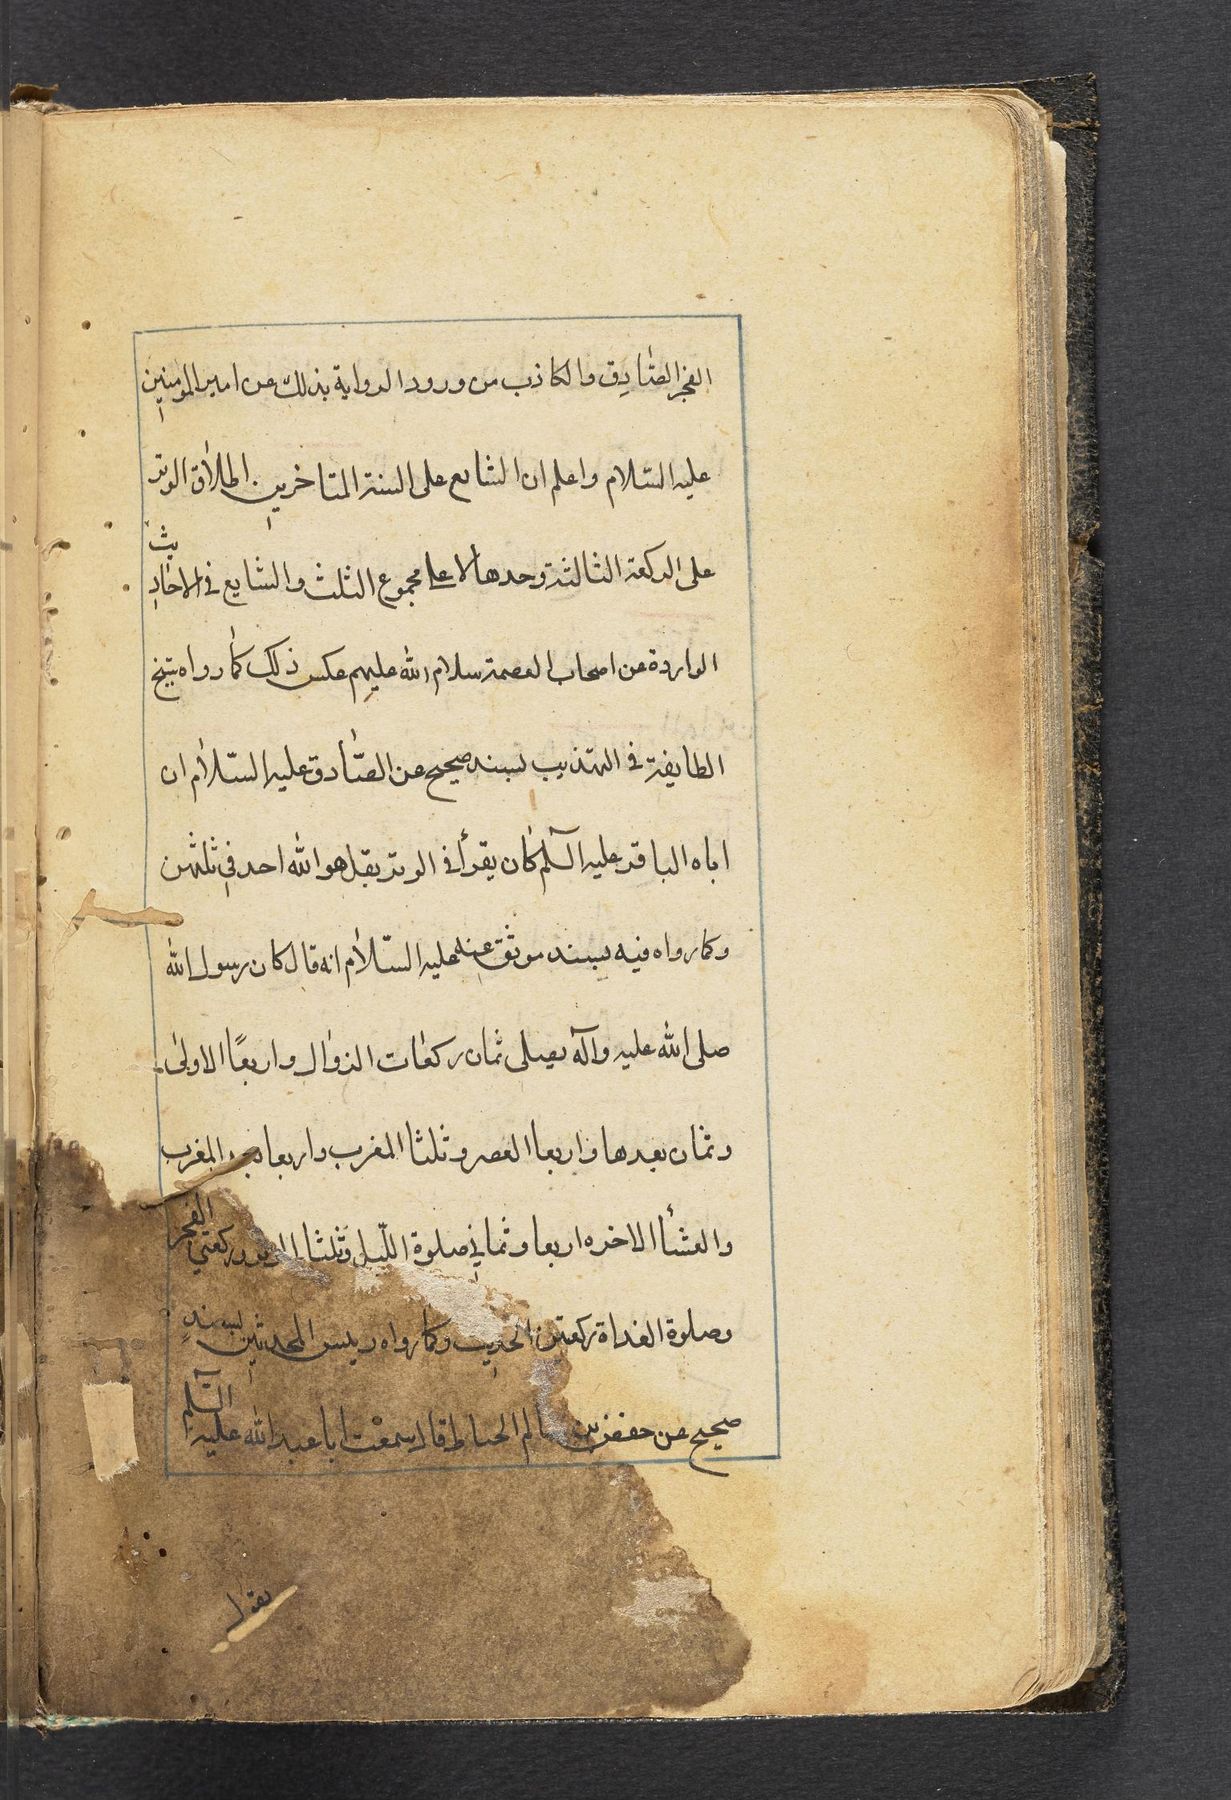 الفجر الصادق والكاذب من ورود الرواية بذلك عن امير المؤمنين
عليه السّلام واعلم ان الشايع على السنة المتاخرين اطلاق الوتر
على الركعة الثالثة وحدها لا على مجموع الثلث والشايع في الاحاديث
الواردة عن اصحاب العصمة سلام الله عليهم عكس ذلك كما رواه شيخ
الطايفة في التهذيب بسند صحيح عن الصّادق عليه السّلام ان
اباه الباقر عليه السّلم كان يقرأ في الوتر بقل هو الله احد في ثلثهن
وكما رواه فيه بسند موثق عنه عليه السّلام انه قال كان رسول الله
صلى الله عليه وآله يصلى ثمان ركعات الزوال واربعًا الاولى
وثمان بعدها واربعا العصر وثلثا المغرب واربعا بعد المغرب
والعشأ الاخره اربعا وثماني صلوة اللّيل وثلثا الوتر وركعتي الفجر
وصلوة الغداة ركعتين الحديث وكما رواه رئيس المحدثين بسند
صحيح عن حفص بن سالم الحناط قال سمعت ابا عبد الله عليه السّلم
يقول